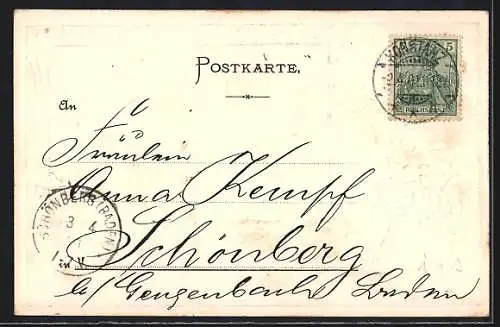 POSTKARTE.
KONSTANZ
5
REICHSPOST
An
Fräulein
Anna Kempf
SCHÖNBERG (BADEN)
3 4
in Schönberg
b/ Gengenbach Baden